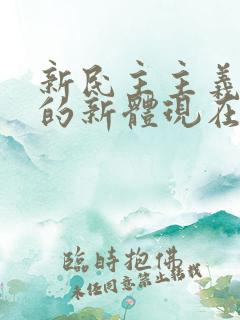 新民主主義
的新體現在
臨時抱佛
未經同意禁止轉載